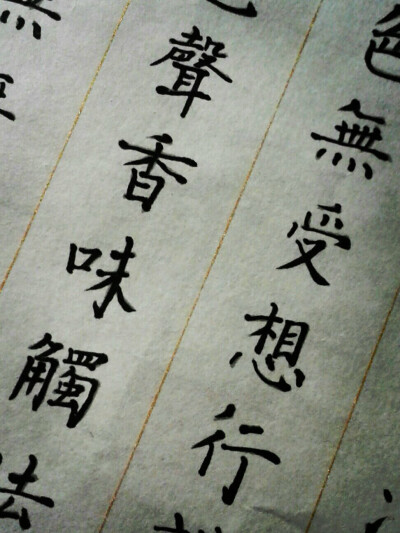 色無受想行
聲香味觸法
無